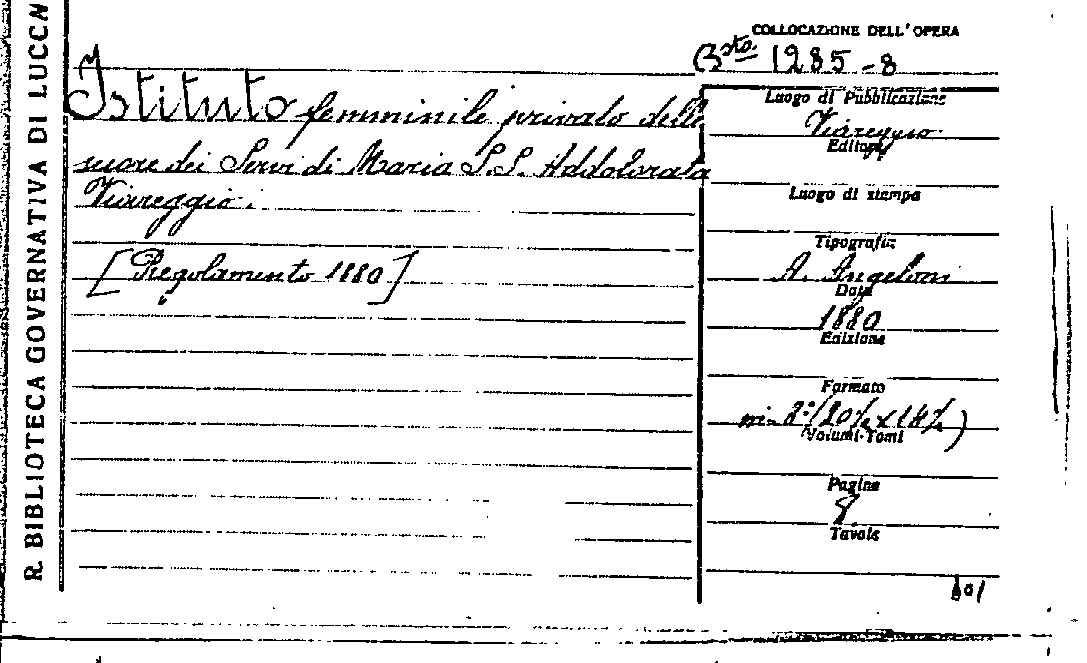 R. BIBLIOTECA GOVERNATIVA DI LUCCA
COLLOCAZIONE DELL'OPERA
Bsta. 1285-8
Istituto femminile privato delle
suore dei Servi di Maria S.S. Addolorata
Viareggio.
[Regolamento 1880]
Luogo di Pubblicazione
Viareggio
Editore
Luogo di stampa
Tipografia
A. Angeloni
Data
1880
Edizione
Formato
in-8°
Volumi-Tomi
Pagine
8
Tavole